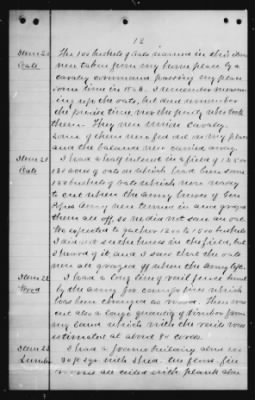 12
Item 20 The 100 bushels of Oats claimed in this Item
Oats were taken from my home place by a
cavalry command passing my place
some time in 1862. I remember measur-
ing up the oats, but dont remember
the precise time, nor the party who took
them. They were Union cavalry.
Some of them were fed out at my place
and the balance were carried away.
Item 21 I had a half interest in a field of
Oats 120 acres of oats on which had been some
100 bushels of oats which were ready
to cut when the army horses of Gen
army were turned in and grazed
them all off, so we did not save an oat.
We expected to gather 1200 to 1500 bushels
I did not see the horses in the field, but
I heard of it, and I saw that the oats
were all grazed off when the army left.
Item 22 I had a long line of rail fence burned
Wood by the army for camp fires which
has been charged as wood. There was
cut also a large quantity of timber from
my land which with the rails was
estimated at about 80 cords.
Item 23 I had a frame building about
Lumber 30 ft sqr. with shed.
were all sided with plank also